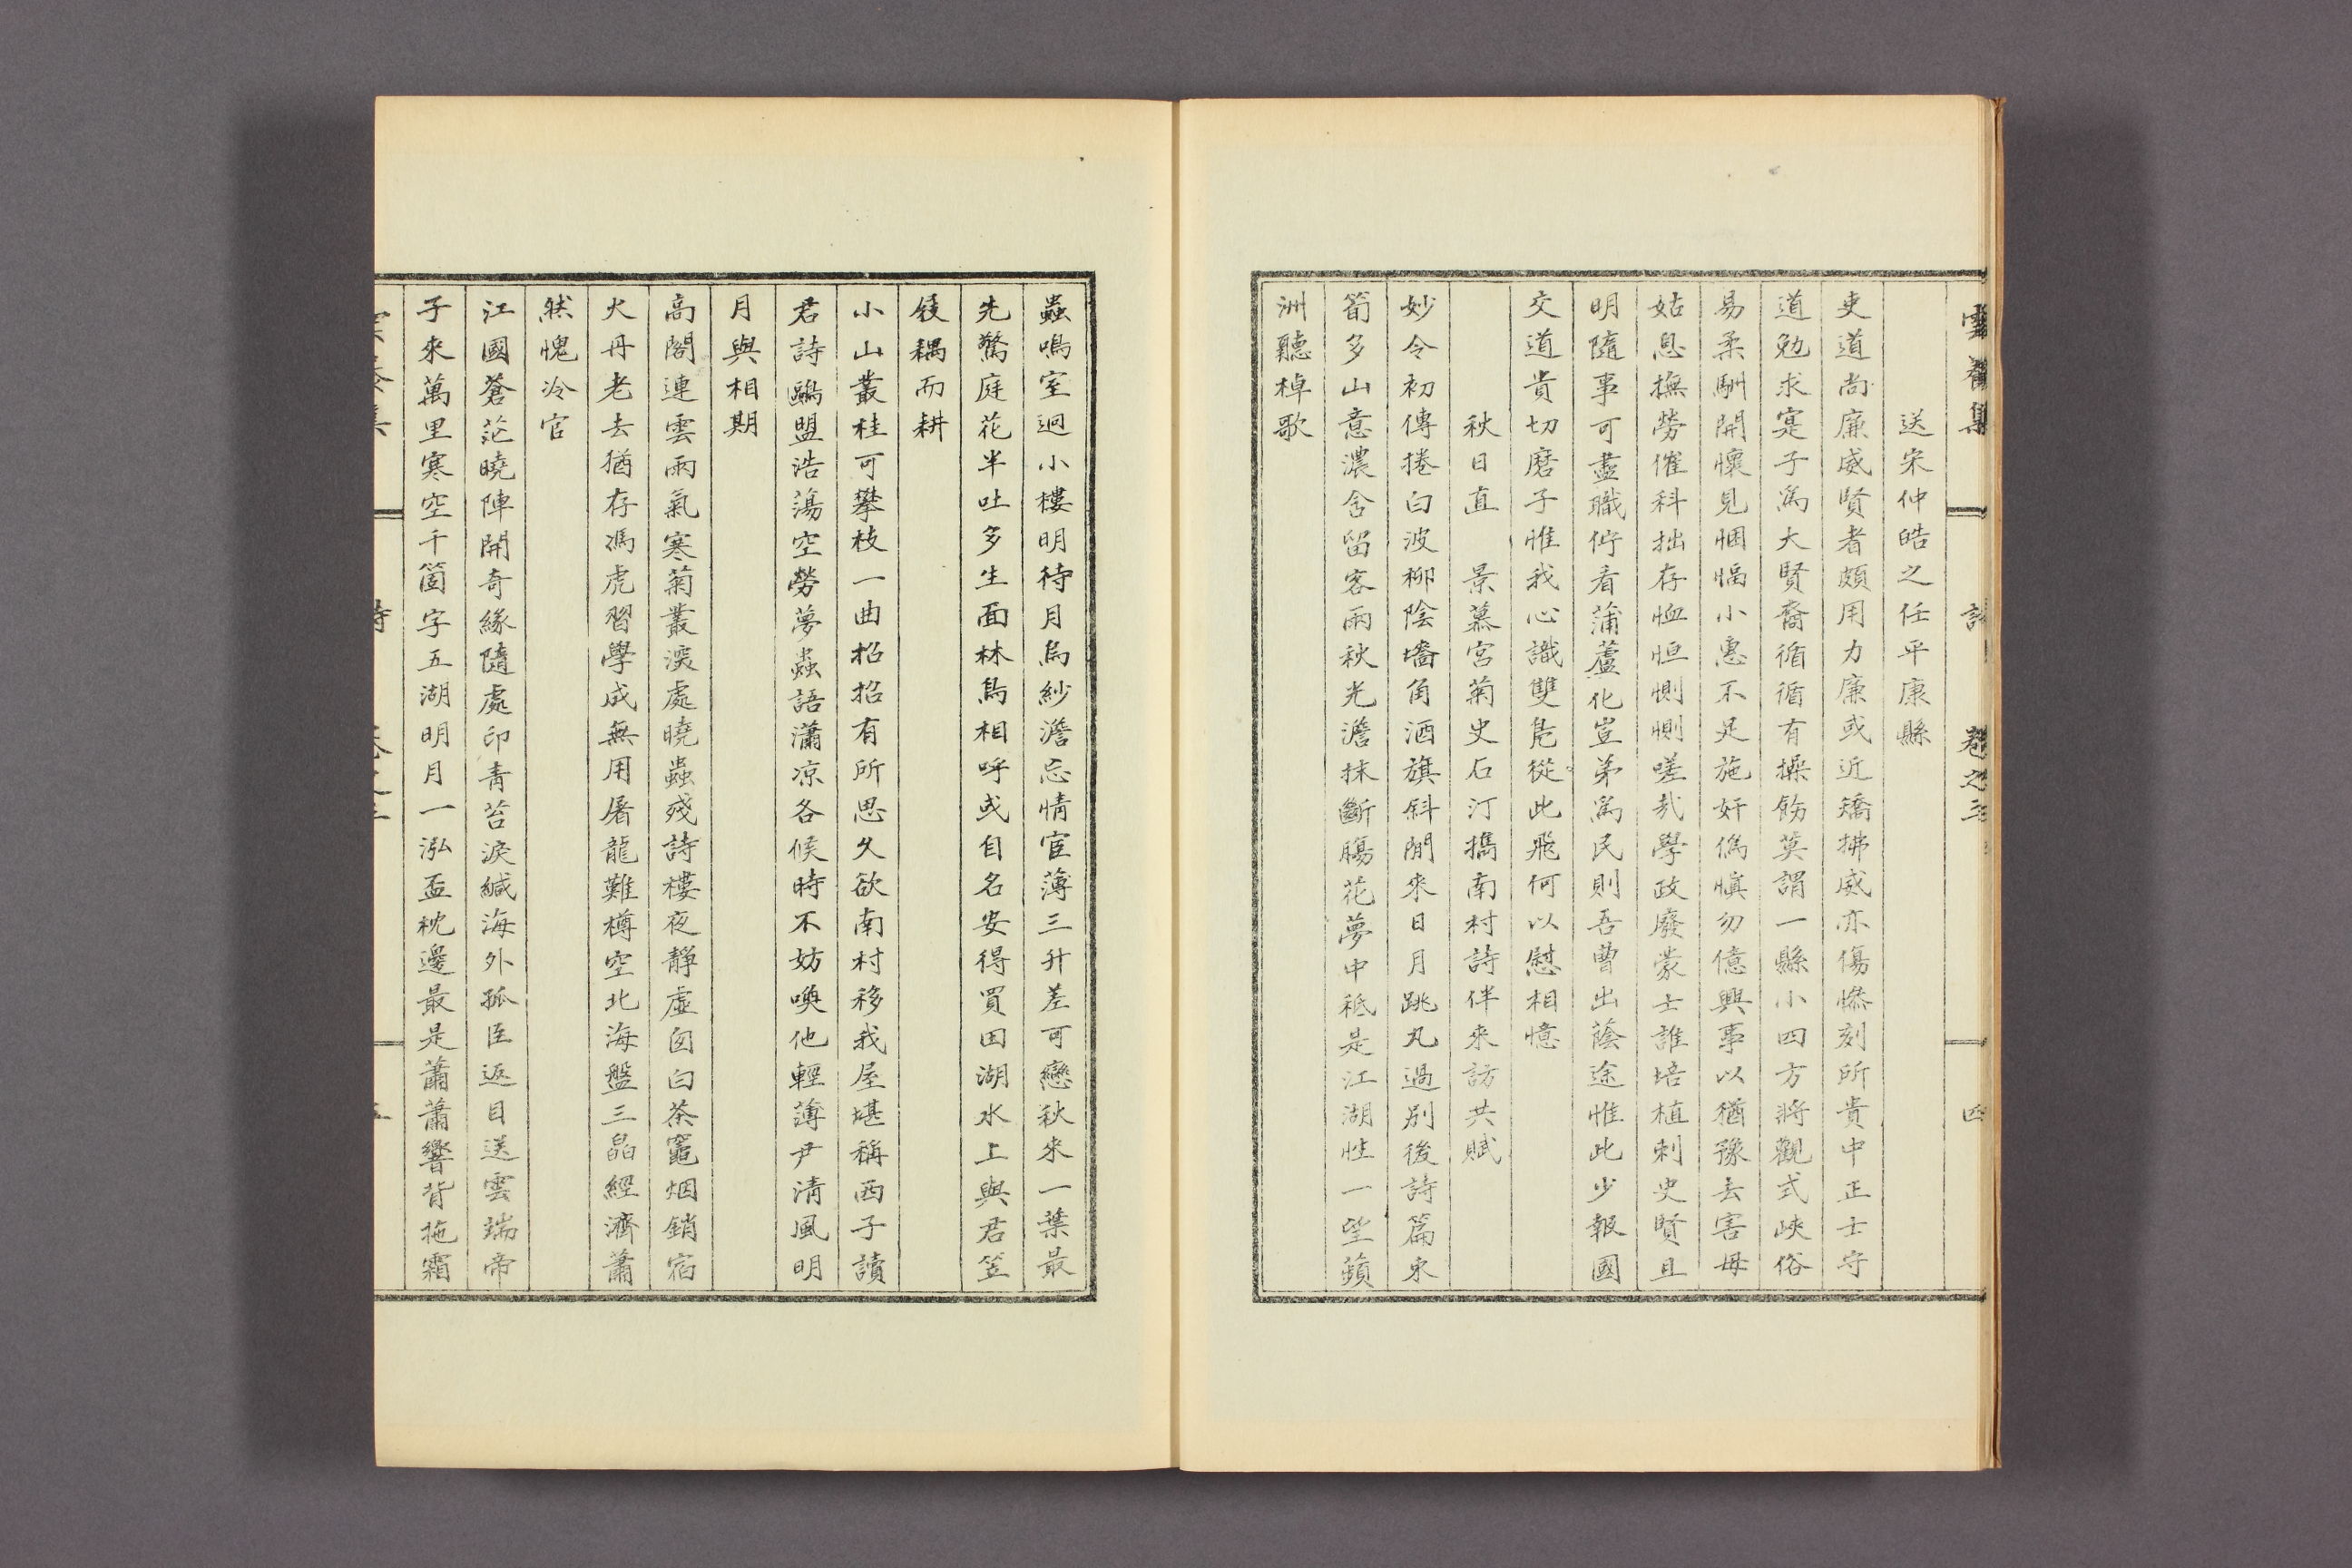 雲養集 詩 卷之三 四
送宋仲皓之任平康縣
吏道尚廉威賢者頗用力廉或近矯拂威亦傷慘刻所貴中正士守
道勉求寔子爲大賢裔循循有操飭莫謂一縣小四方將觀式峽俗
易柔馴開懷見悃愊小惠不足施奸僞愼勿億興事以猶豫去害毋
姑息撫勞催科拙存恤恒惻惻嗟哉學政廢蒙士誰培植刺史賢且
明隨事可盡職佇看蒲蘆化豈弟爲民則吾曹出蔭途惟此少報國
交道貴切磨子惟我心識雙鳧從此飛何以慰相憶
秋日直 景慕宮菊史石汀擕南村詩伴來訪共賦
妙令初傳捲白波柳陰墻角酒旗斜閒來日月跳丸過別後詩篇束
筍多山意濃含留客雨秋光澹抹斷膓花夢中秪是江湖性一望蘋
洲聽棹歌
蟲鳴室迥小樓明待月烏紗澹忘情宦薄三升差可戀秋來一葉最
先驚庭花半吐多生面林鳥相呼或自名安得買田湖水上與君笠
屐耦而耕
小山叢桂可攀枝一曲招招有所思久欲南村移我屋堪稱西子讀
君詩鷗盟浩蕩空勞夢蟲語瀟凉各候時不妨喚他輕薄尹清風明
月與相期
高閣連雲雨氣寒菊叢深處曉蟲殘詩樓夜靜虛囪白茶竈烟銷宿
火丹老去猶存馮虎習學成無用屠龍難樽空北海盤三皛經濟蕭
然愧冷官
江國蒼茫曉陣開奇緣隨處印青苔淚緘海外孤臣返目送雲端帝
子來萬里寒空千箇字五湖明月一泓盃枕邊最是蕭蕭響背拖霜